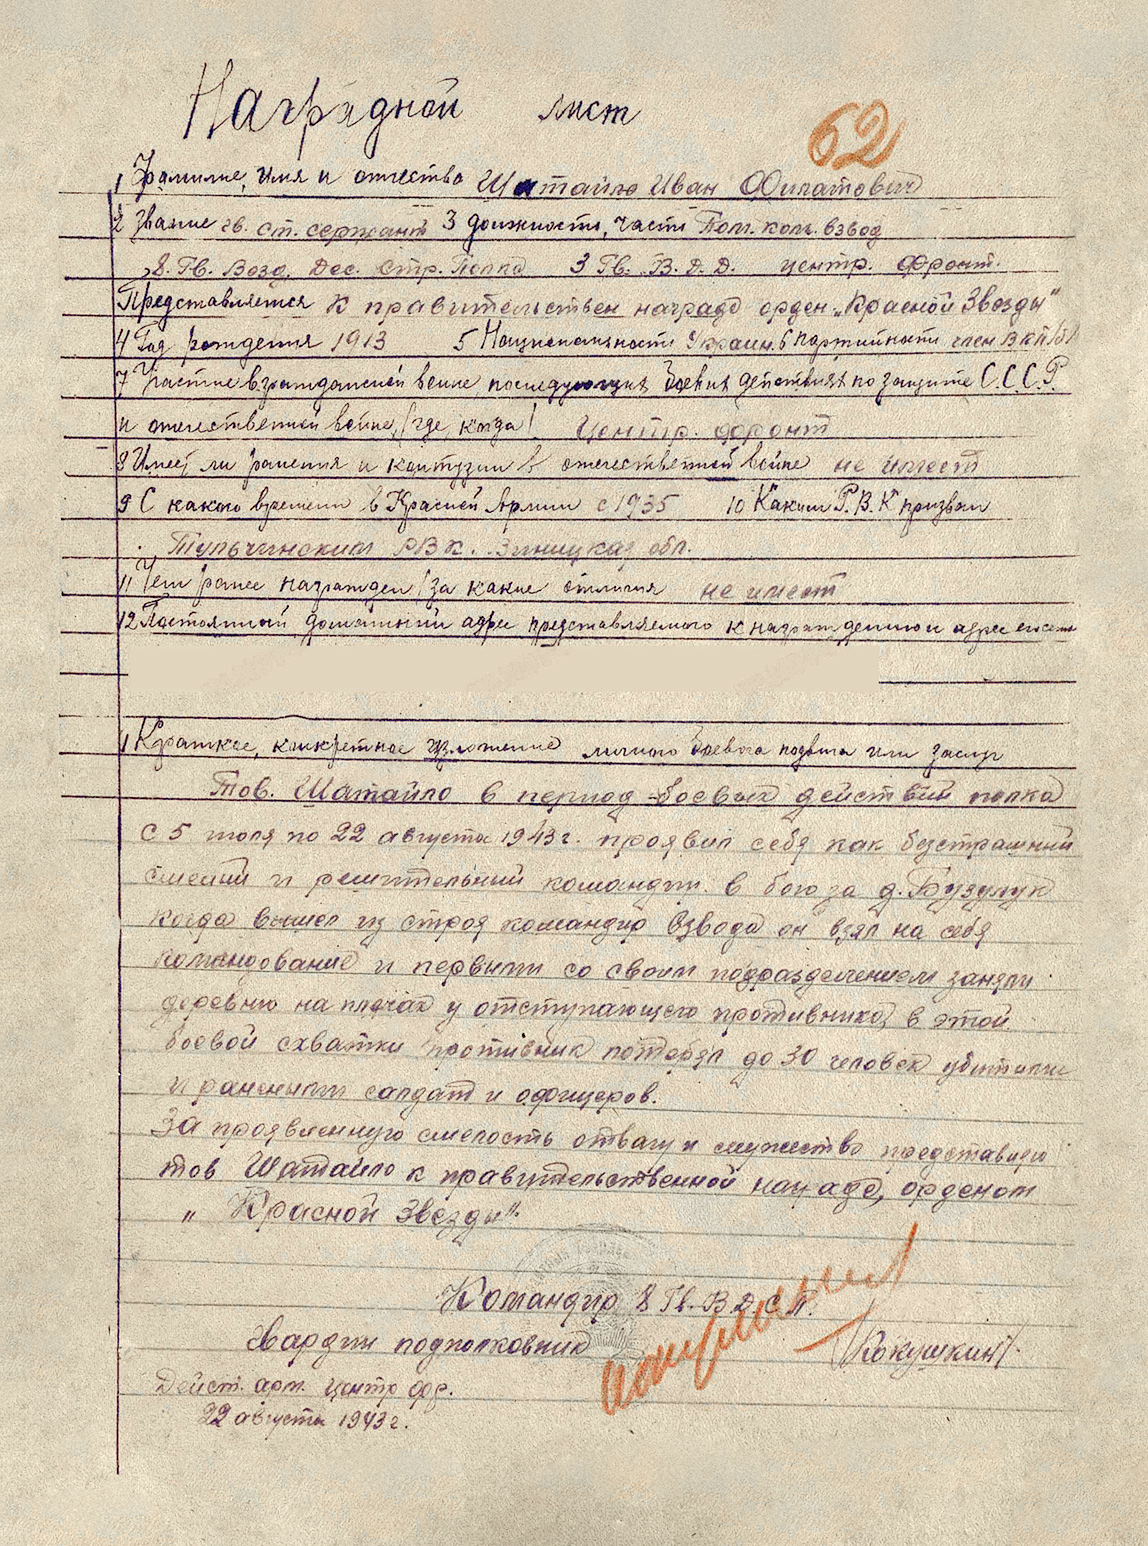 Наградной лист
62
1 Фамилие, имя и отчество Шатайло Иван Филатович
2 Звание гв. ст. сержант 3 Должность, часть Пом. ком. взвод
8. Гв. Возд. Дес. Стр. Полка 3 Гв. В.Д.Д. центр. Фронт.
Представляется к правительствен награде орден „Красной Звезды"
4 Год рождения 1913 5 Национальность Украин. 6 партийность член ВКП(б)
7 Участие в гражданской войне, последующих боевых действиях по защите С.С.С.Р.
и отечественной войне, (где, когда) Центр. фронт
8 Имеет ли ранения и контузии в отечественной войне не имеет
9 С какого времени в Красной Армии с 1935 10 Каким Р.В.К призван
Тульчинским РВК. Виницкая обл.
11 Чем ранее награжден (за какие отличия не имеет
12 Постоянный домашний адрес представляемого к награждению и адрес его семьи
1 Краткое, конкретное изложение личного боевого подвига или заслуг
Тов. Шатайло в период боевых действий полка
с 5 июля по 22 августа 1943 г. проявил себя как безстрашный
смелый и решительный командир. в бою за д. Бузулук
когда вышел из строя командир взвода он взял на себя
командование и первыми со своим подразделением заняли
деревню на плечах у отступающего противника, в этой
боевой схватки противник потерял до 30 человек убитыми
и ранеными салдат и офицеров.
За проявленную смелость отвагу и мужество представляю
тов Шатайло к правительственной награде, орденом
„Красной Звезды".
Командир 8 Гв. В.Д.С.П.
Гвардии подполковник Кокушкин
Дейст. арм. центр фр.
22 августа 1943 г.